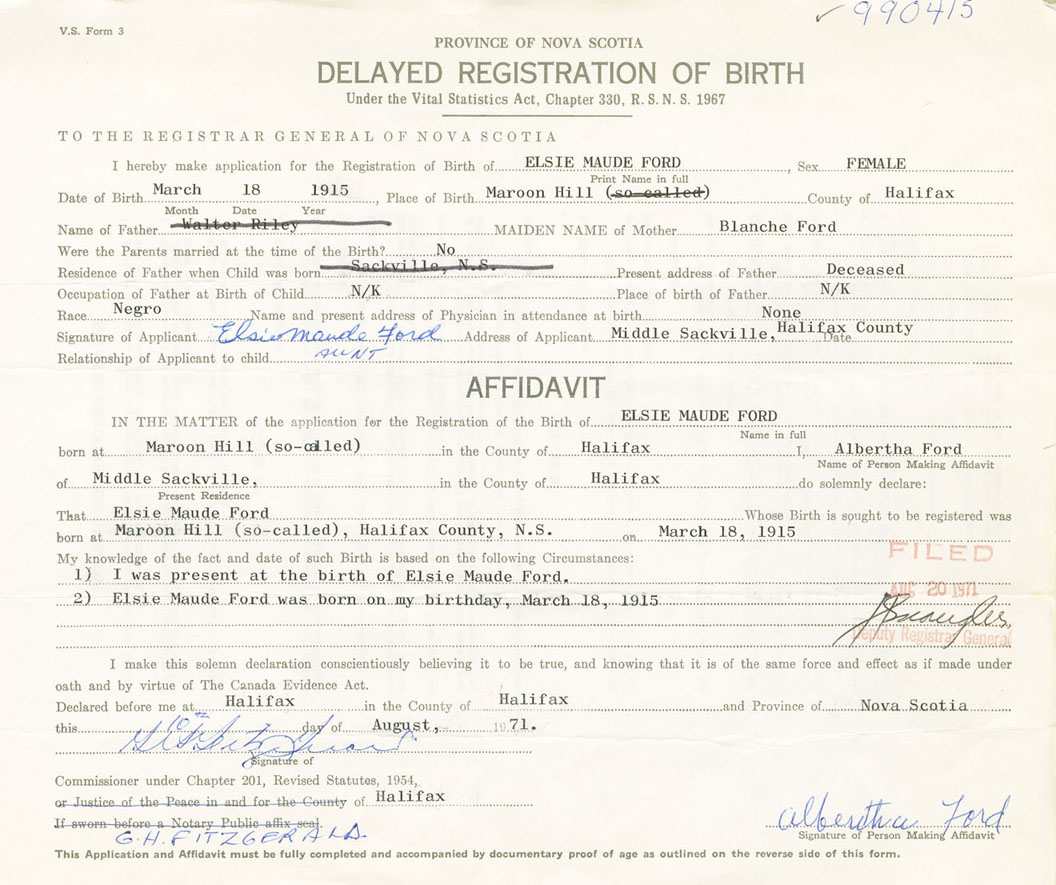 990415
V.S. Form 3
PROVINCE OF NOVA SCOTIA
DELAYED REGISTRATION OF BIRTH
Under the Vital Statistics Act, Chapter 330, R. S. N. S. 1967
TO THE REGISTRAR GENERAL OF NOVA SCOTIA
I hereby make application for the Registration of Birth of ELSIE MAUDE FORD, Sex FEMALE
Print Name in full
Date of Birth March 18 1915, Place of Birth Maroon Hill (so-called) County of Halifax
Month Date Year
Name of Father Walter Riley MAIDEN NAME of Mother Blanche Ford
Were the Parents married at the time of the Birth? No
Residence of Father when Child was born Sackville, N.S. Present address of Father Deceased
Occupation of Father at Birth of Child N/K Place of birth of Father N/K
Race Negro Name and present address of Physician in attendance at birth None
Signature of Applicant Elsie Maude Ford Address of Applicant Middle Sackville, Halifax County Date
Relationship of Applicant to child AUNT
AFFIDAVIT
IN THE MATTER of the application for the Registration of the Birth of ELSIE MAUDE FORD
Name in full
born at Maroon Hill (so-called) in the County of Halifax I, Albertha Ford
Name of Person Making Affidavit
of Middle Sackville, in the County of Halifax do solemnly declare:
Present Residence
That Elsie Maude Ford Whose Birth is sought to be registered was
born at Maroon Hill (so-called), Halifax County, N.S. on March 18, 1915
My knowledge of the fact and date of such Birth is based on the following Circumstances:
FILED
1) I was present at the birth of Elsie Maude Ford.
AUG 20 1971
2) Elsie Maude Ford was born on my birthday, March 18, 1915
Deputy Registrar General
I make this solemn declaration conscientiously believing it to be true, and knowing that it is of the same force and effect as if made under
oath and by virtue of The Canada Evidence Act.
Declared before me at Halifax in the County of Halifax and Province of Nova Scotia
this day of August, 1971.
Signature of
Commissioner under Chapter 201, Revised Statutes, 1954,
or Justice of the Peace in and for the County of Halifax
If sworn before a Notary Public affix seal.
G.H. FITZGERALD
Albertha Ford
Signature of Person Making Affidavit
This Application and Affidavit must be fully completed and accompanied by documentary proof of age as outlined on the reverse side of this form.